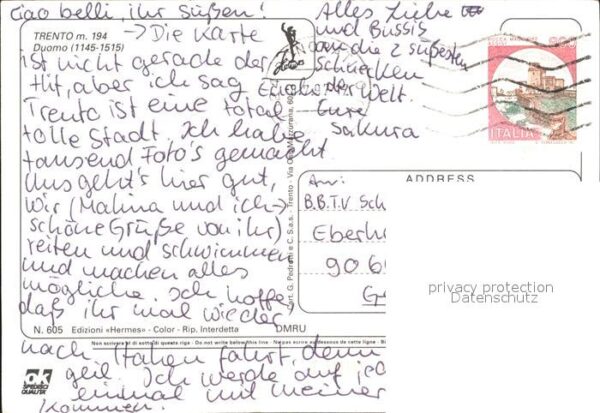 Ciao belli, ihr süßen!
TRENTO m. 194
Duomo (1145-1515)
→ Die Karte
ist nicht gerade der
Hit, aber ich sag Euch
Trento ist eine total
tolle Stadt. Ich habe
tausend Foto's gemacht
Uns geht's hier gut,
wir (Malina und ich →
schöne Grüße von ihr)
reiten und schwimmen
und machen alles
mögliche. Ich hoffe,
daß ihr mal wieder
nach Italien fahrt, denn
geil. Ich werde auf je
einmal mit meiner
kommen.
Alles Liebe
und Bussis
an die 2 süßesten
Schnecken
der Welt.
Eure
Sakura
ITALIA
ADDRESS
An:
B.B.T.V. Sch
Eberh
9060
G
privacy protection
Datenschutz
N. 605 Edizioni «Hermes» - Color - Rip. Interdetta
DMRU
Non scrivere al di sotto di questa riga - Do not write below this line - Ne pas écrire au-dessous de cette ligne -
ok
SPEDISCI
QUALSER